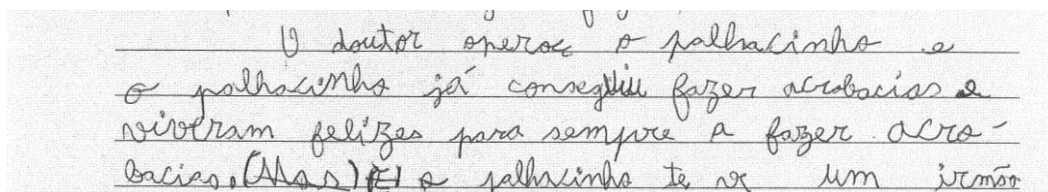 O doutor operou o palhacinho e
o palhacinho já conseguiu fazer acrobacias e
viveram felizes para sempre a fazer acro-
bacias. (Mas) E o palhacinho te ve um irmão